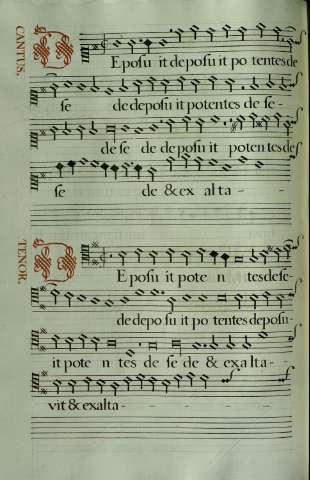 CANTUS.
D Eposu it deposu it po tentes de
se de deposu it potentes de se -
de se de deposu it potentes des
se de & ex al ta - -
TENOR.
D Eposu it pote n tes de se-
de depo su it po tentes deposu-
it pote n tes de se de & exalta-
vit & exalta - - - - -